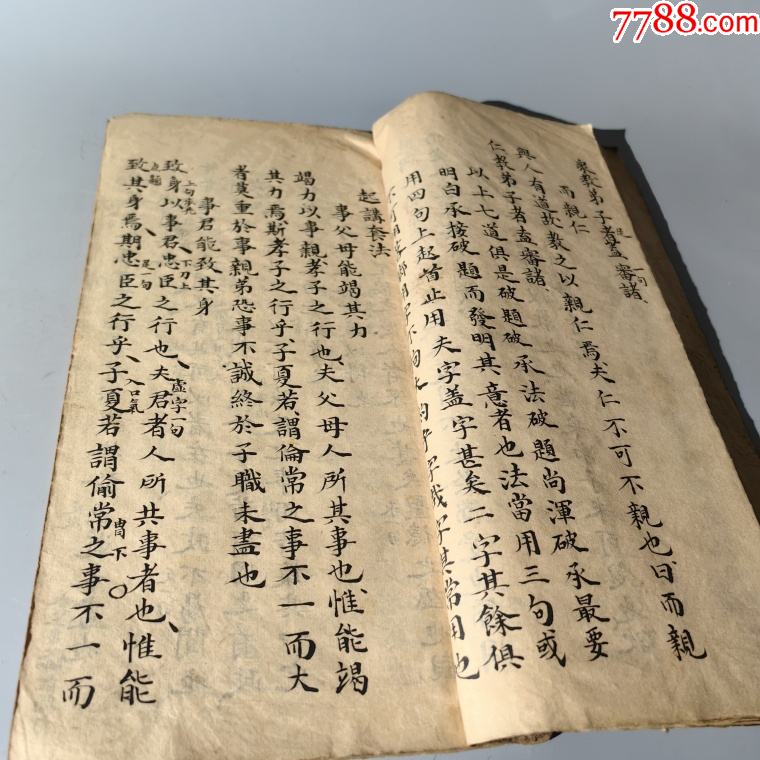 7788.com
教弟子者盍審諸
民一句
而親仁
與人有道故教之以親仁焉夫仁不可不親也曰而親
仁教弟子者盍審諸
以上七道俱是破題破承法破題尚渾破承最要
明白承接破題而發明其意者也法當用三句或
用四句上起首止用夫字蓋字甚矣二字其餘俱
不可用 字 字 字其常用也
起講套法
事父母能竭其力
竭力以事親孝子之行也夫父母人所其事也惟能竭
其力焉斯孝子之行乎子夏若謂倫常之事不一而大
者莫重於事親弟恐事不誠終於子職未盡也
事君能致其身
致身以事君忠臣之行也夫君者人所共事者也惟能
上句
下刀上
虛字一句
致其身焉期忠臣之行乎子夏若謂偷常之事不一而
点題
足一句
入口氣
冒下